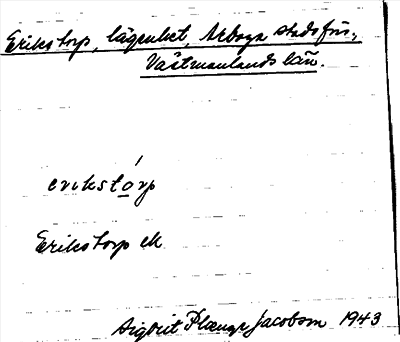 Erikstorp, lägenhet, Arboga stadsförs.,
Västmanlands län.
erikstórp
Erikstorp ek
Sigbrit Plænge Jacobson 1943